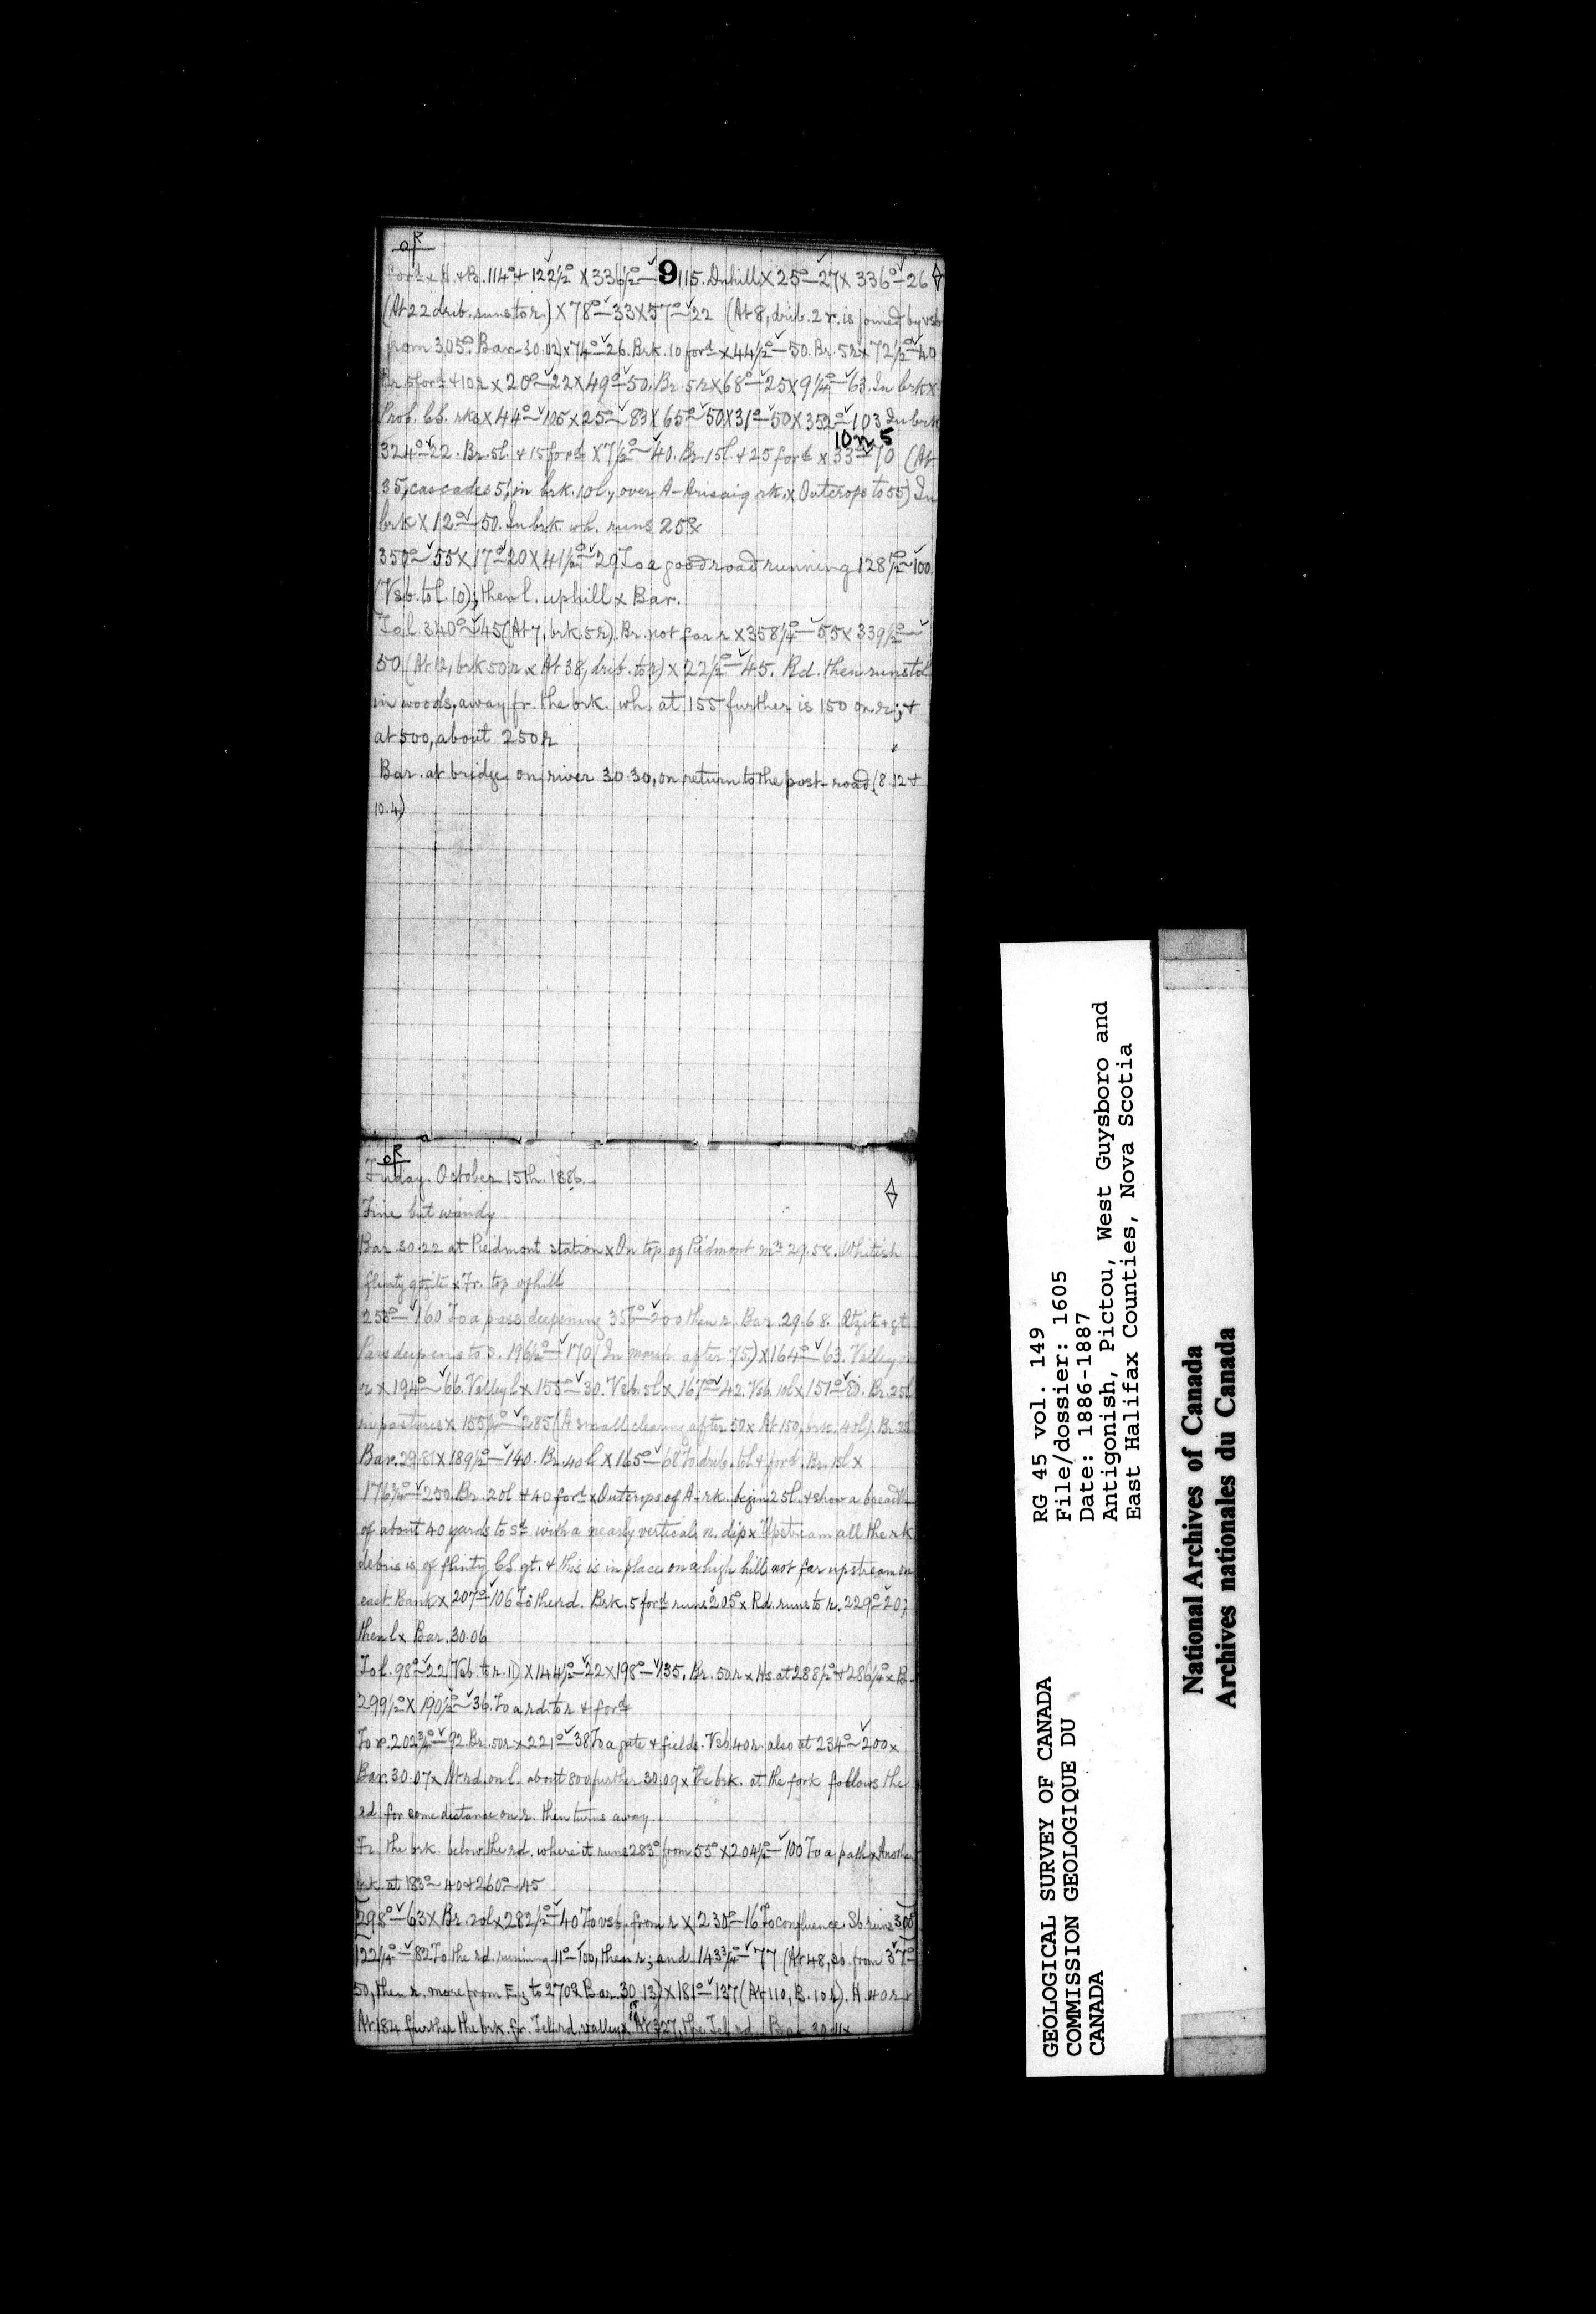 of R
9
ford x H. & B. 114° + 122½° x 336½° — 115. Inhill x 25° — 27 x 336° — 26
(At 22 drib. runs to r.) x 78° — 33 x 57° — 22 (At 8, drib. 2 r. is joined by vsb
from 305°. Bar. 30.02) x 74° — 26. Brk. 10 ford x 44½° — 50. Br. 5 r x 72½° — 40
Br 5 ford + 10 r x 20° — 22 x 49° — 50. Br. 5 r x 68° — 25 x 9¼° — 63. In brk x
Prob. CS. rks x 44° — 105 x 25° — 83 x 65° — 50 x 31° — 50 x 352° — 103 In brk
10 n 5
324° — 22. Br. 5 l. + 15 ford x 7½° — 40. Br. 15 l. + 25 ford x 33° — 70 (At
35, cascades 5', in brk. 10 l., over A-Arisaig rk. x Outcrops to 55) In
brk x 12° — 50. In brk. wh. runs 25° x
350° — 55 x 17° — 20 x 41½° — 29 To a good road running 128½° — 100
(Vsb. to l. 10); then l. uphill x Bar.
To l. 340° — 45 (At 7, brk. 5 r). Br. not far r x 358¼° — 55 x 339½° —
50 (At 12, brk 50 r x At 38, drib. to r) x 22½° — 45. Rd. then runs to l
in woods, away fr. the brk. wh. at 155 further is 150 on r.; +
at 500, about 250 r
Bar. at bridge on river 30.30, on return to the post-road (8.12 +
10.4)
of R
Friday. October 15th. 1886.
Fine but windy
Bar. 30.22 at Piedmont station x On top of Piedmont mn 29.58. Whitish
flinty qtzite x Fr. top of hill
258° — 160 To a pass deepening 357° — 200 then r. Bar. 29.68. Qtzite + gt
Pass deepens to S. 196½° — 170 (In marsh after 75) x 164° — 63. Valley
r x 194° — 66. Valley l x 155° — 30. Vsb. 5 l x 167° — 42. Vsb. 10 l x 157° — 80. Br. 25 l
in pastures x 155½° — 285 (A small clearing after 50 x At 150, brk. 40 l). Br. 35 l
Bar. 29.81 x 189½° — 140. Br. 40 l x 165° — 68 To drib. to l + ford. Br. 15 l x
176¾° — 250. Br. 20 l + 40 ford x Outcrops of A-rk. begin 25 l. + show a breadth
of about 40 yards to Sd. with a nearly vertical n. dip x Upstream all the rk
debris is of flinty CS. gt. + this is in place on a high hill not far upstream on
east Bank x 207° — 106 To the rd. Brk. 5 ford runs 205° x Rd. runs to r. 229° — 207
then l x Bar. 30.06
To l. 98° — 22 (Vsb. to r. 11) x 144½° — 22 x 198° — 135. Br. 50 r x Hs. at 288½° + 286¼° x B-
299½° x 190½° — 36. To a rd. to r + ford
To r. 202¾° — 92. Br. 50 r x 221° — 38 To a gate + fields. Vsb 40 r. also at 234° — 200 x
Bar. 30.07 x At rd. on l. about 800 further 30.09 x The brk. at the fork follows the
rd. for some distance on r. then turns away
Fr. the brk. below the rd. where it runs 283° from 55° x 204½° — 100 To a path x Another
brk at 183° — 40 + 260° — 45
298° — 63 x Br. 20 l x 282½° — 40 To vsb. from r x 230° — 16 To confluence. Sb runs 300°
122¼° — 82 To the rd. running 11° — 100, then r; and 143¾° — 77 (At 48, sb. from 37° —
50, then r. more from E; to 270° x Bar. 30.13) x 181° — 137 (At 110, B. 10 r). H. 40 r x
At 184 further the brk. fr. Telird valley x At 327, the Tel. rd. Bar. 30.11 x
GEOLOGICAL SURVEY OF CANADA
COMMISSION GEOLOGIQUE DU
CANADA
RG 45 vol. 149
File/dossier: 1605
Date: 1886-1887
Antigonish, Pictou, West Guysboro and
East Halifax Counties, Nova Scotia
National Archives of Canada
Archives nationales du Canada